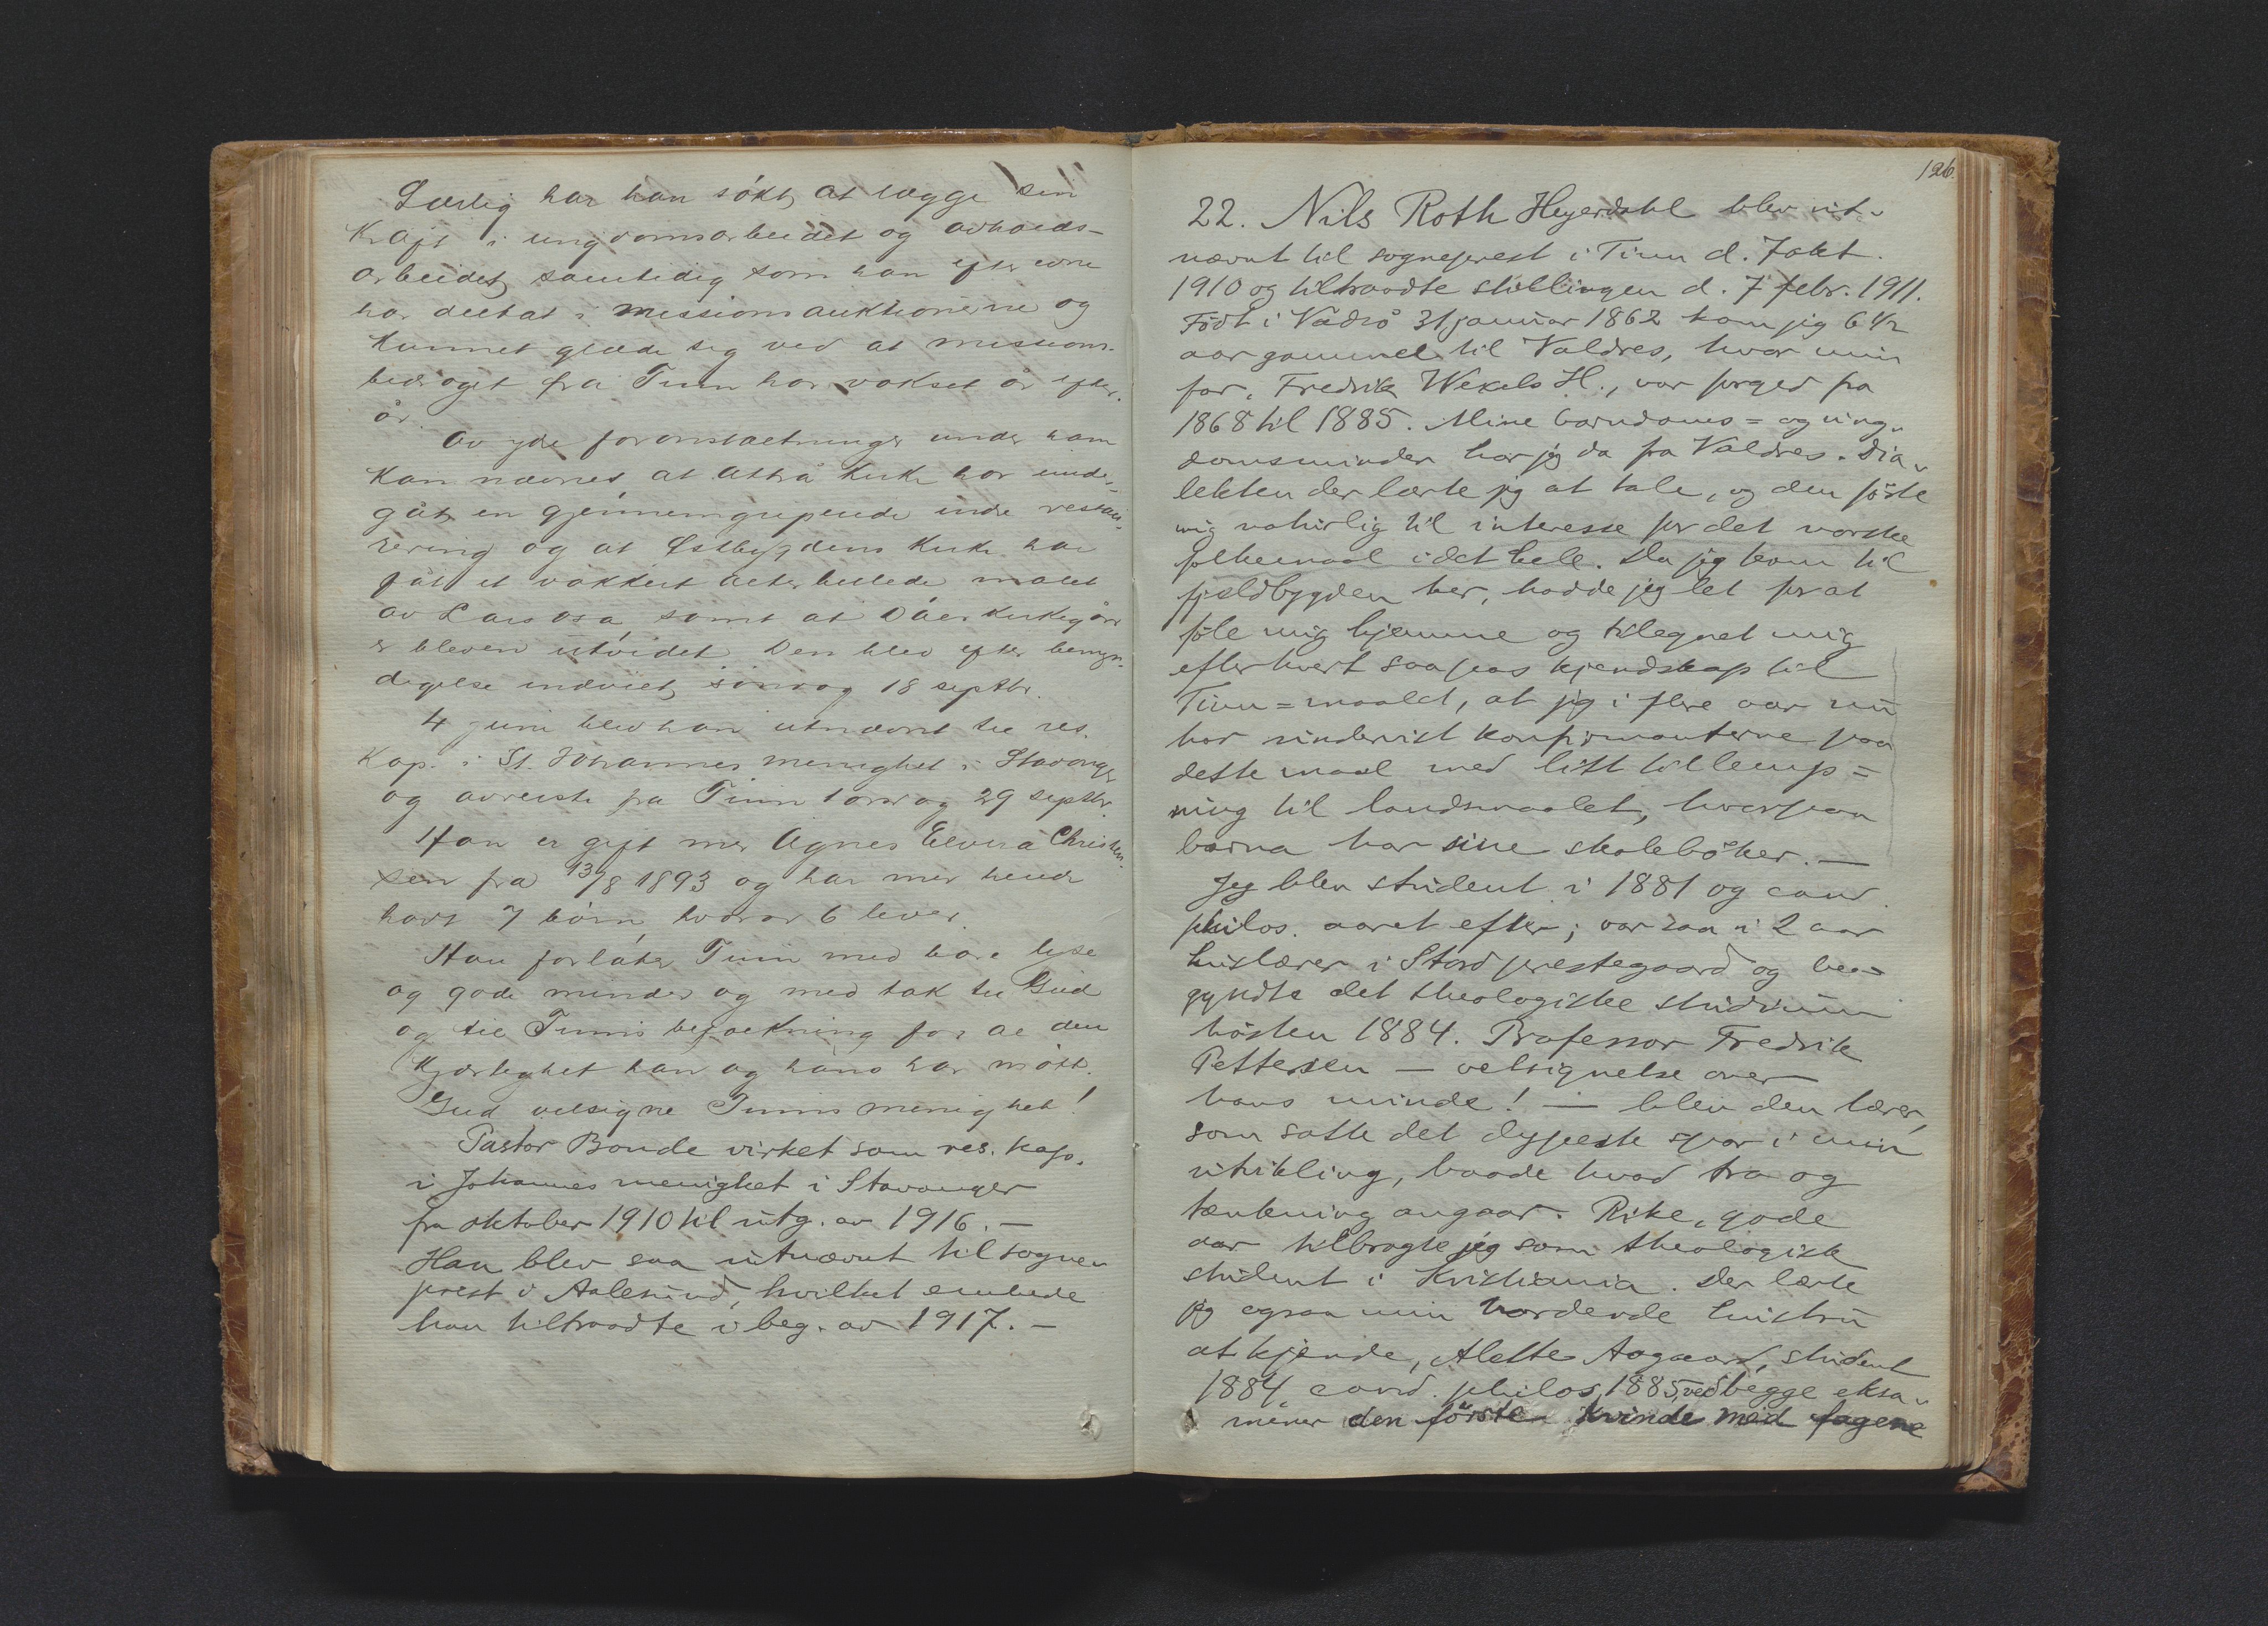 Særlig har han søkt at lægge sin
kraft i ungdomsarbeidet og avholds-
arbeidet, samtidig som han efter evne
har deltat i missionsauktionerne og
kunnet glæde sig ved at missions-
bidraget fra Tinn har vokset år efter
år.
Av ydre foranstaltninger under ham
kan nævnes at Atrå kirke har under-
gåt en gjennemgripende indre restau-
rering og at Østbygdens kirke har
fåt et vakkert alterbillede malet
av Lars Osa samt at Dáer kirkegård
er bleven utvidet. Den blev efter bemyn-
digelse indviet søndag 18 septbr.
4 juni blev han utnævnt til res.
kap. i St. Johannes menighet i Stavanger
og avreiste fra Tinn torsdag 29 septbr.
Han er gift med Agnes Elvira Christen-
sen fra 13/8 1893 og har med hende
havt 7 børn, hvorav 6 lever.
Han forlater Tinn med bare lyse
og gode minder og med tak til Gud
og til Tinns befolkning for al den
kjærlighet han og hans har møtt.
Gud velsigne Tinns menighet!
Pastor Bonde virket som res. kap.
i Johannes menighet i Stavanger
fra oktober 1910 til utg. av 1916. –
Han blev saa utnævnt til sogne-
prest i Aalesund, hvilket embede
han tiltraadte i beg. av 1917. –
126.
22. Nils Roth Heyerdahl blev ut-
nævnt til sogneprest i Tinn d. 7 okt.
1910 og tiltraadte stillingen d. 7 febr. 1911.
Født i Vadsø 31 januar 1862 kom jeg 6 1/2
aar gammel til Valdres, hvor min
far, Fredrik Wexels H., var foged fra
1868 til 1885. Mine barndoms= og ung-
domsminder har jeg da fra Valdres. Dia-
lekten der lærte jeg at tale, og den førte
mig naturlig til interesse for det norske
folkemaal i det hele. Da jeg kom til
fjeldbygden her, hadde jeg let for at
føle mig hjemme og tilegnet mig
efterhvert saapas kjendskap til
Tinn=maalet, at jeg i flere aar nu
har undervist konfirmanterne paa
dette maal med litt tillemp=
ning til landsmaalet, hvorpaa
barna har sine skolebøker. –
Jeg blev student i 1881 og cand.
philos. aaret efter; var saa i 2 aar
huslærer i Stord prestegaard og be-
gyndte det theologiske studium
høsten 1884. Professor Fredrik
Pettersen – velsignelse over
hans minde! – blev den lærer,
som satte det dypeste spor i min
utvikling, baade hvad tro og
tænkning angaar. Rike, gode
aar tilbragte jeg som theologisk
student i Kristiania. Der lærte
jeg ogsaa min vordende hustru
at kjende, Alette Aagaard, student
1884, cand. philos. 1885, ved begge eksa-
mener den første kvinde med fagene